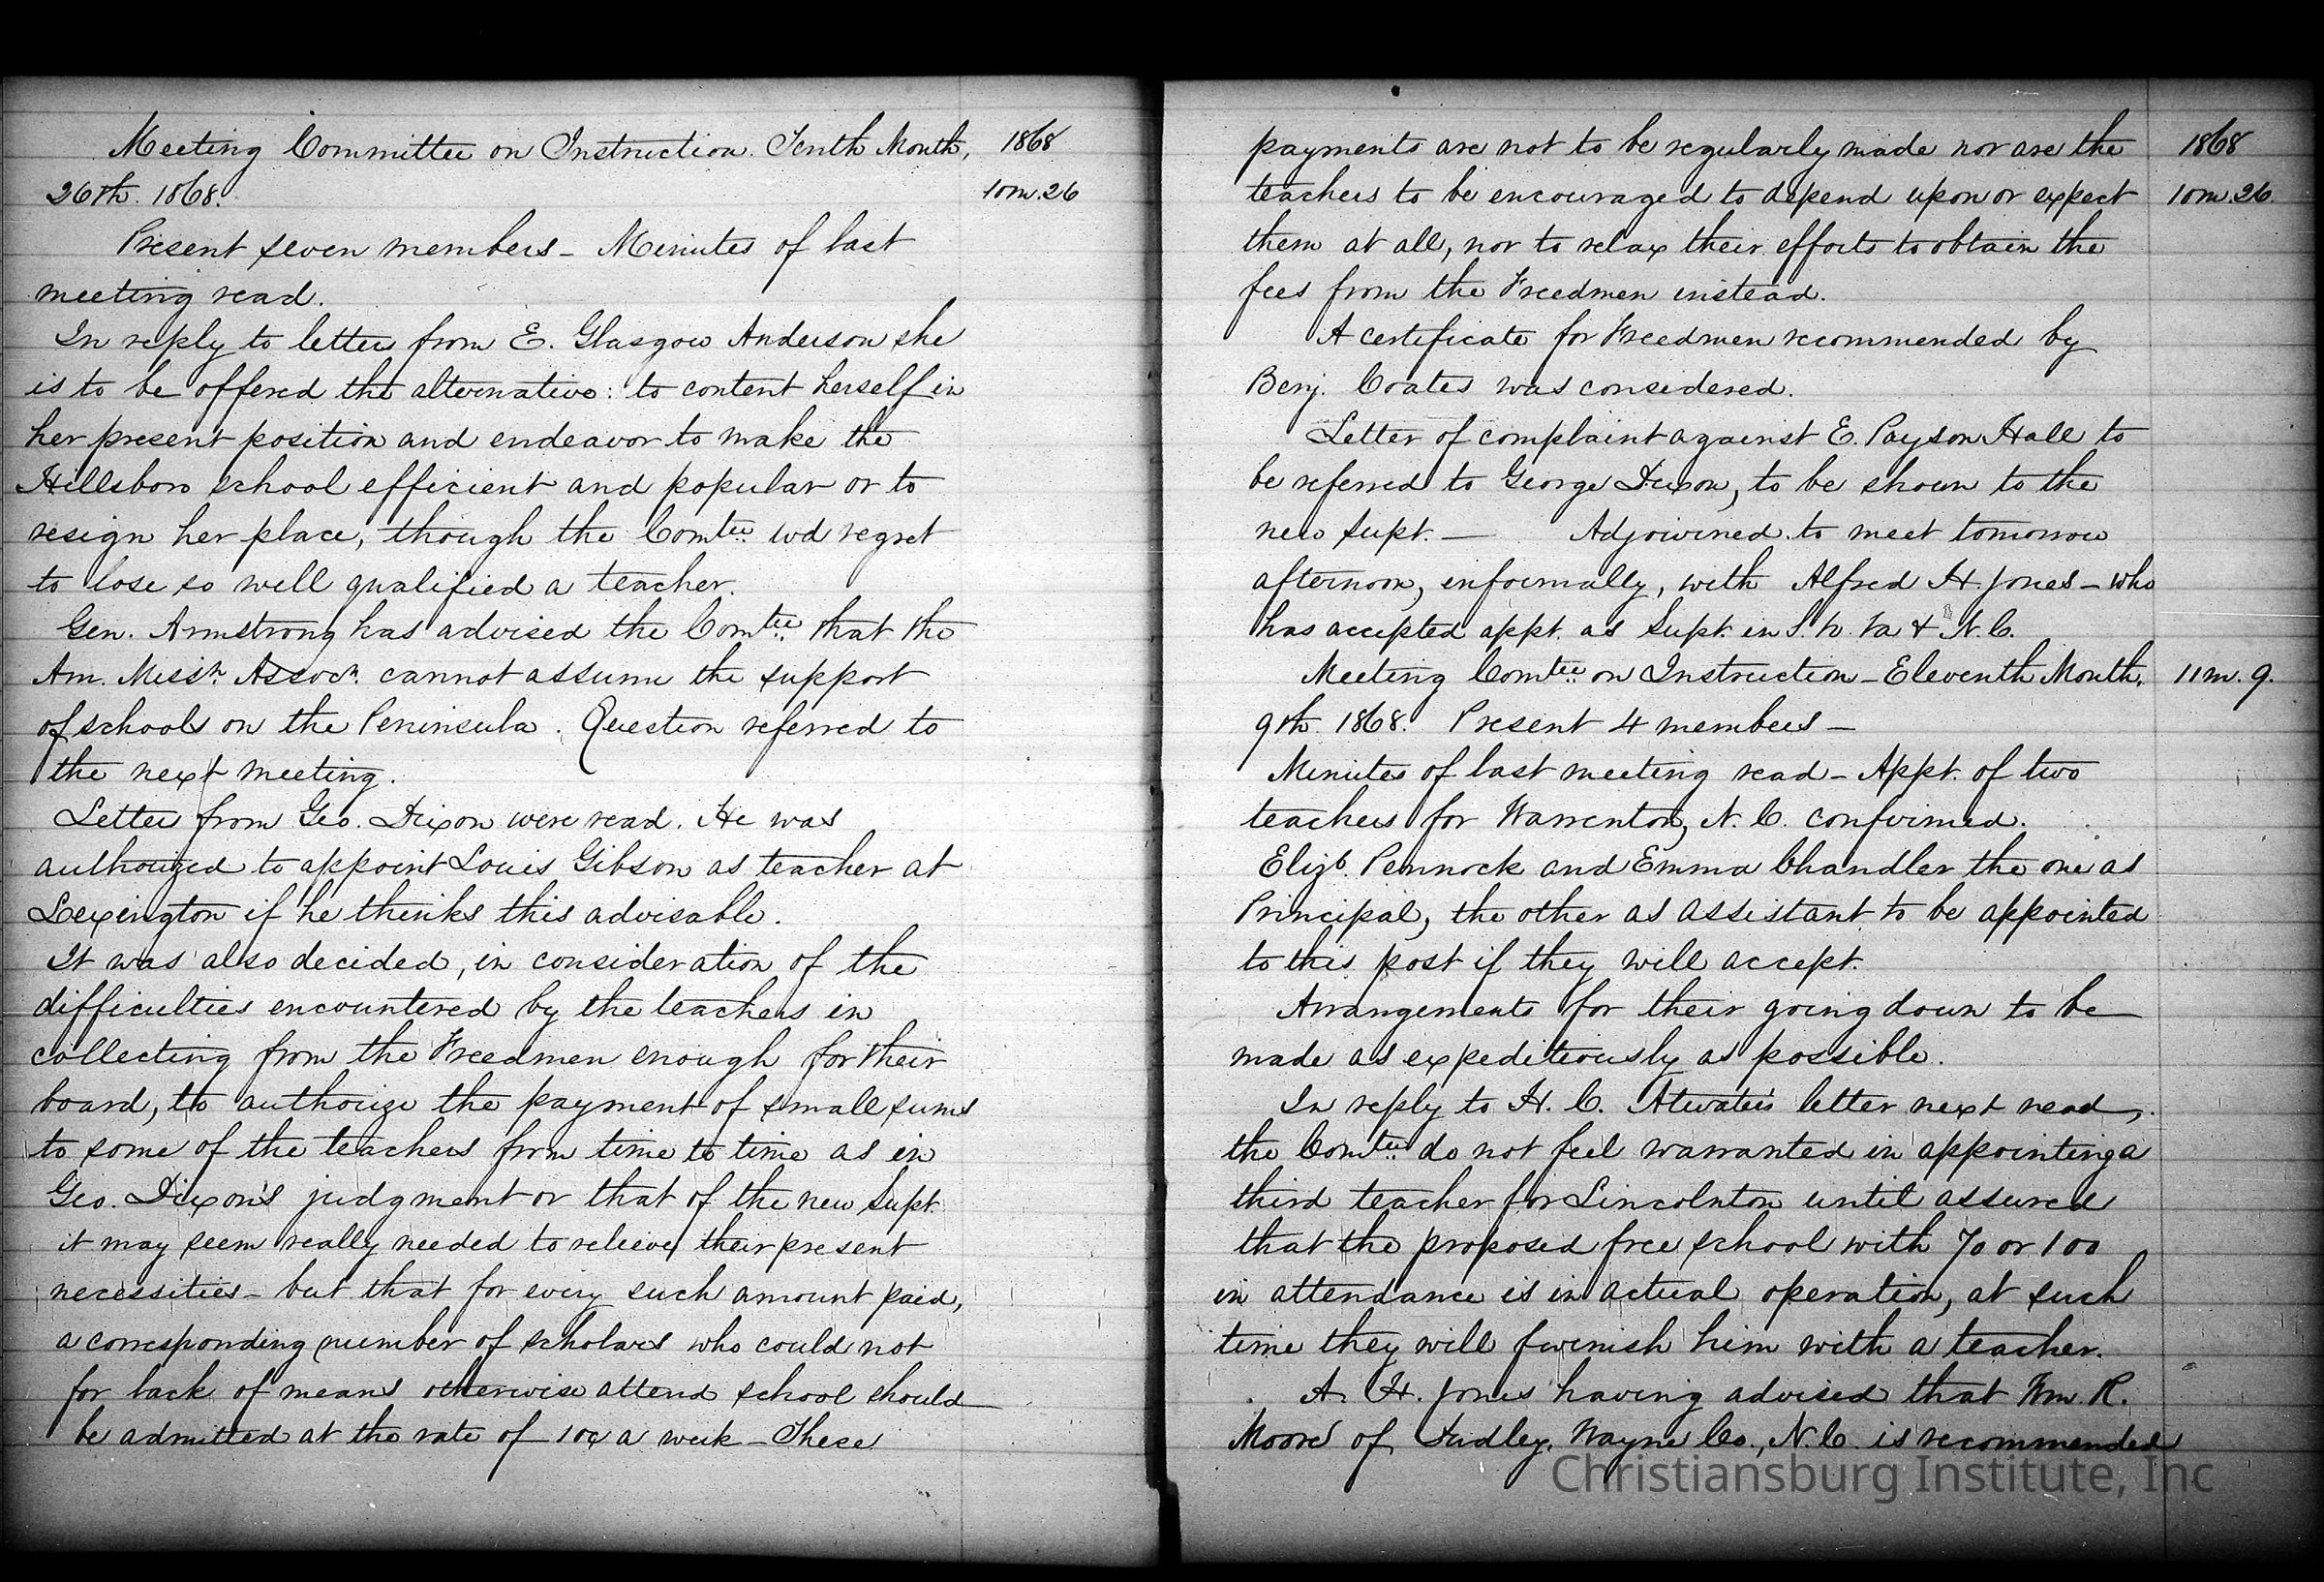 Meeting Committee on Instruction. Tenth Month, 1868
26th. 1868. 10m.26
Present seven members – Minutes of last
meeting read.
In reply to letter from E. Glasgow Anderson she
is to be offered the alternative: to content herself in
her present position and endeavor to make the
Hillsboro school efficient and popular or to
resign her place, though the Comtee. wd regret
to lose so well qualified a teacher.
Gen. Armstrong has advised the Comtee. that the
Am. Missn. Assocn. cannot assume the support
of schools on the Peninsula. Question referred to
the next meeting.
Letters from Geo. Dixon were read. He was
authorized to appoint Louis Gibson as teacher at
Lexington if he thinks this advisable.
It was also decided, in consideration of the
difficulties encountered by the teachers in
collecting from the Freedmen enough for their
board, to authorize the payment of small sums
to some of the teachers from time to time as in
Geo. Dixon's judgment or that of the new Supt.
it may seem really needed to relieve their present
necessities – but that for every such amount paid,
a corresponding number of scholars who could not
for lack of means otherwise attend school should
be admitted at the rate of 10¢ a week – These
payments are not to be regularly made nor are the 1868
teachers to be encouraged to depend upon or expect 10m.26.
them at all, nor to relax their efforts to obtain the
fees from the Freedmen instead.
A certificate for Freedmen recommended by
Benj. Coates was considered.
Letter of complaint against E. Payson Hall to
be referred to George Dixon, to be shown to the
new Supt. — Adjourned to meet tomorrow
afternoon, informally, with Alfred H. Jones – who
has accepted appt. as Supt. in S. W. Va & N. C.
Meeting Comtee: on Instruction – Eleventh Month, 11m. 9.
9th. 1868. Present 4 members –
Minutes of last meeting read – Appt. of two
teachers for Warrenton, N. C. confirmed.
Elizb. Pennock and Emma Chandler the one as
Principal, the other as assistant to be appointed
to this post if they will accept.
Arrangements for their going down to be
made as expeditiously as possible.
In reply to H. C. Atwater's letter next read,
the Comtee: do not feel warranted in appointing a
third teacher for Lincolnton until assured
that the proposed free school with 70 or 100
in attendance is in actual operation, at such
time they will furnish him with a teacher.
A. H. Jones having advised that Wm. R.
Moore of Dudley, Wayne Co., N. C. is recommended
Christiansburg Institute, Inc